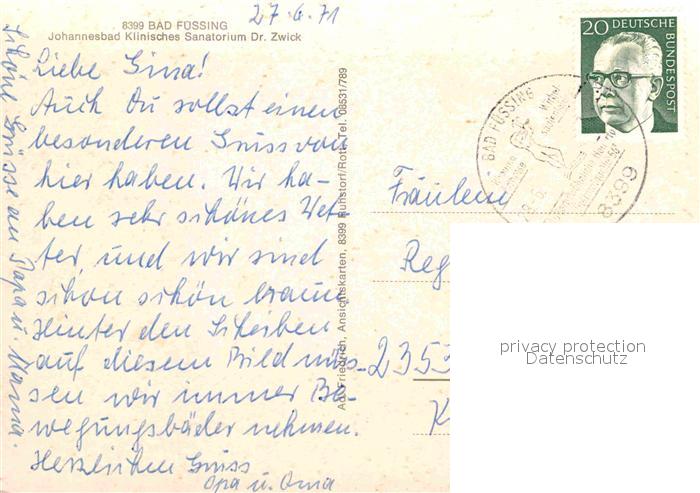 27.6.71
8399 BAD FÜSSING
Johannesbad Klinisches Sanatorium Dr. Zwick
Liebe Gina!
Auch Du sollst einen
besonderen Gruss von
hier haben. Wir ha-
ben sehr schönes Wet-
ter, und wir sind
schon schön braun.
Hinter den Scheiben
auf diesem Bild müs-
sen wir immer Be-
wegungsbäder nehmen.
Herzlichen Gruss
Opa u. Oma
Schöne Grüsse an Papa u. Mama.
Ad. Friedrich, Ansichtskarten, 8399 Ruhstorf/Rott, Tel. 08531/789
20 DEUTSCHE
BUNDESPOST
BAD FÜSSING
8399
Fräulein
Reg
2353
K
privacy protection
Datenschutz